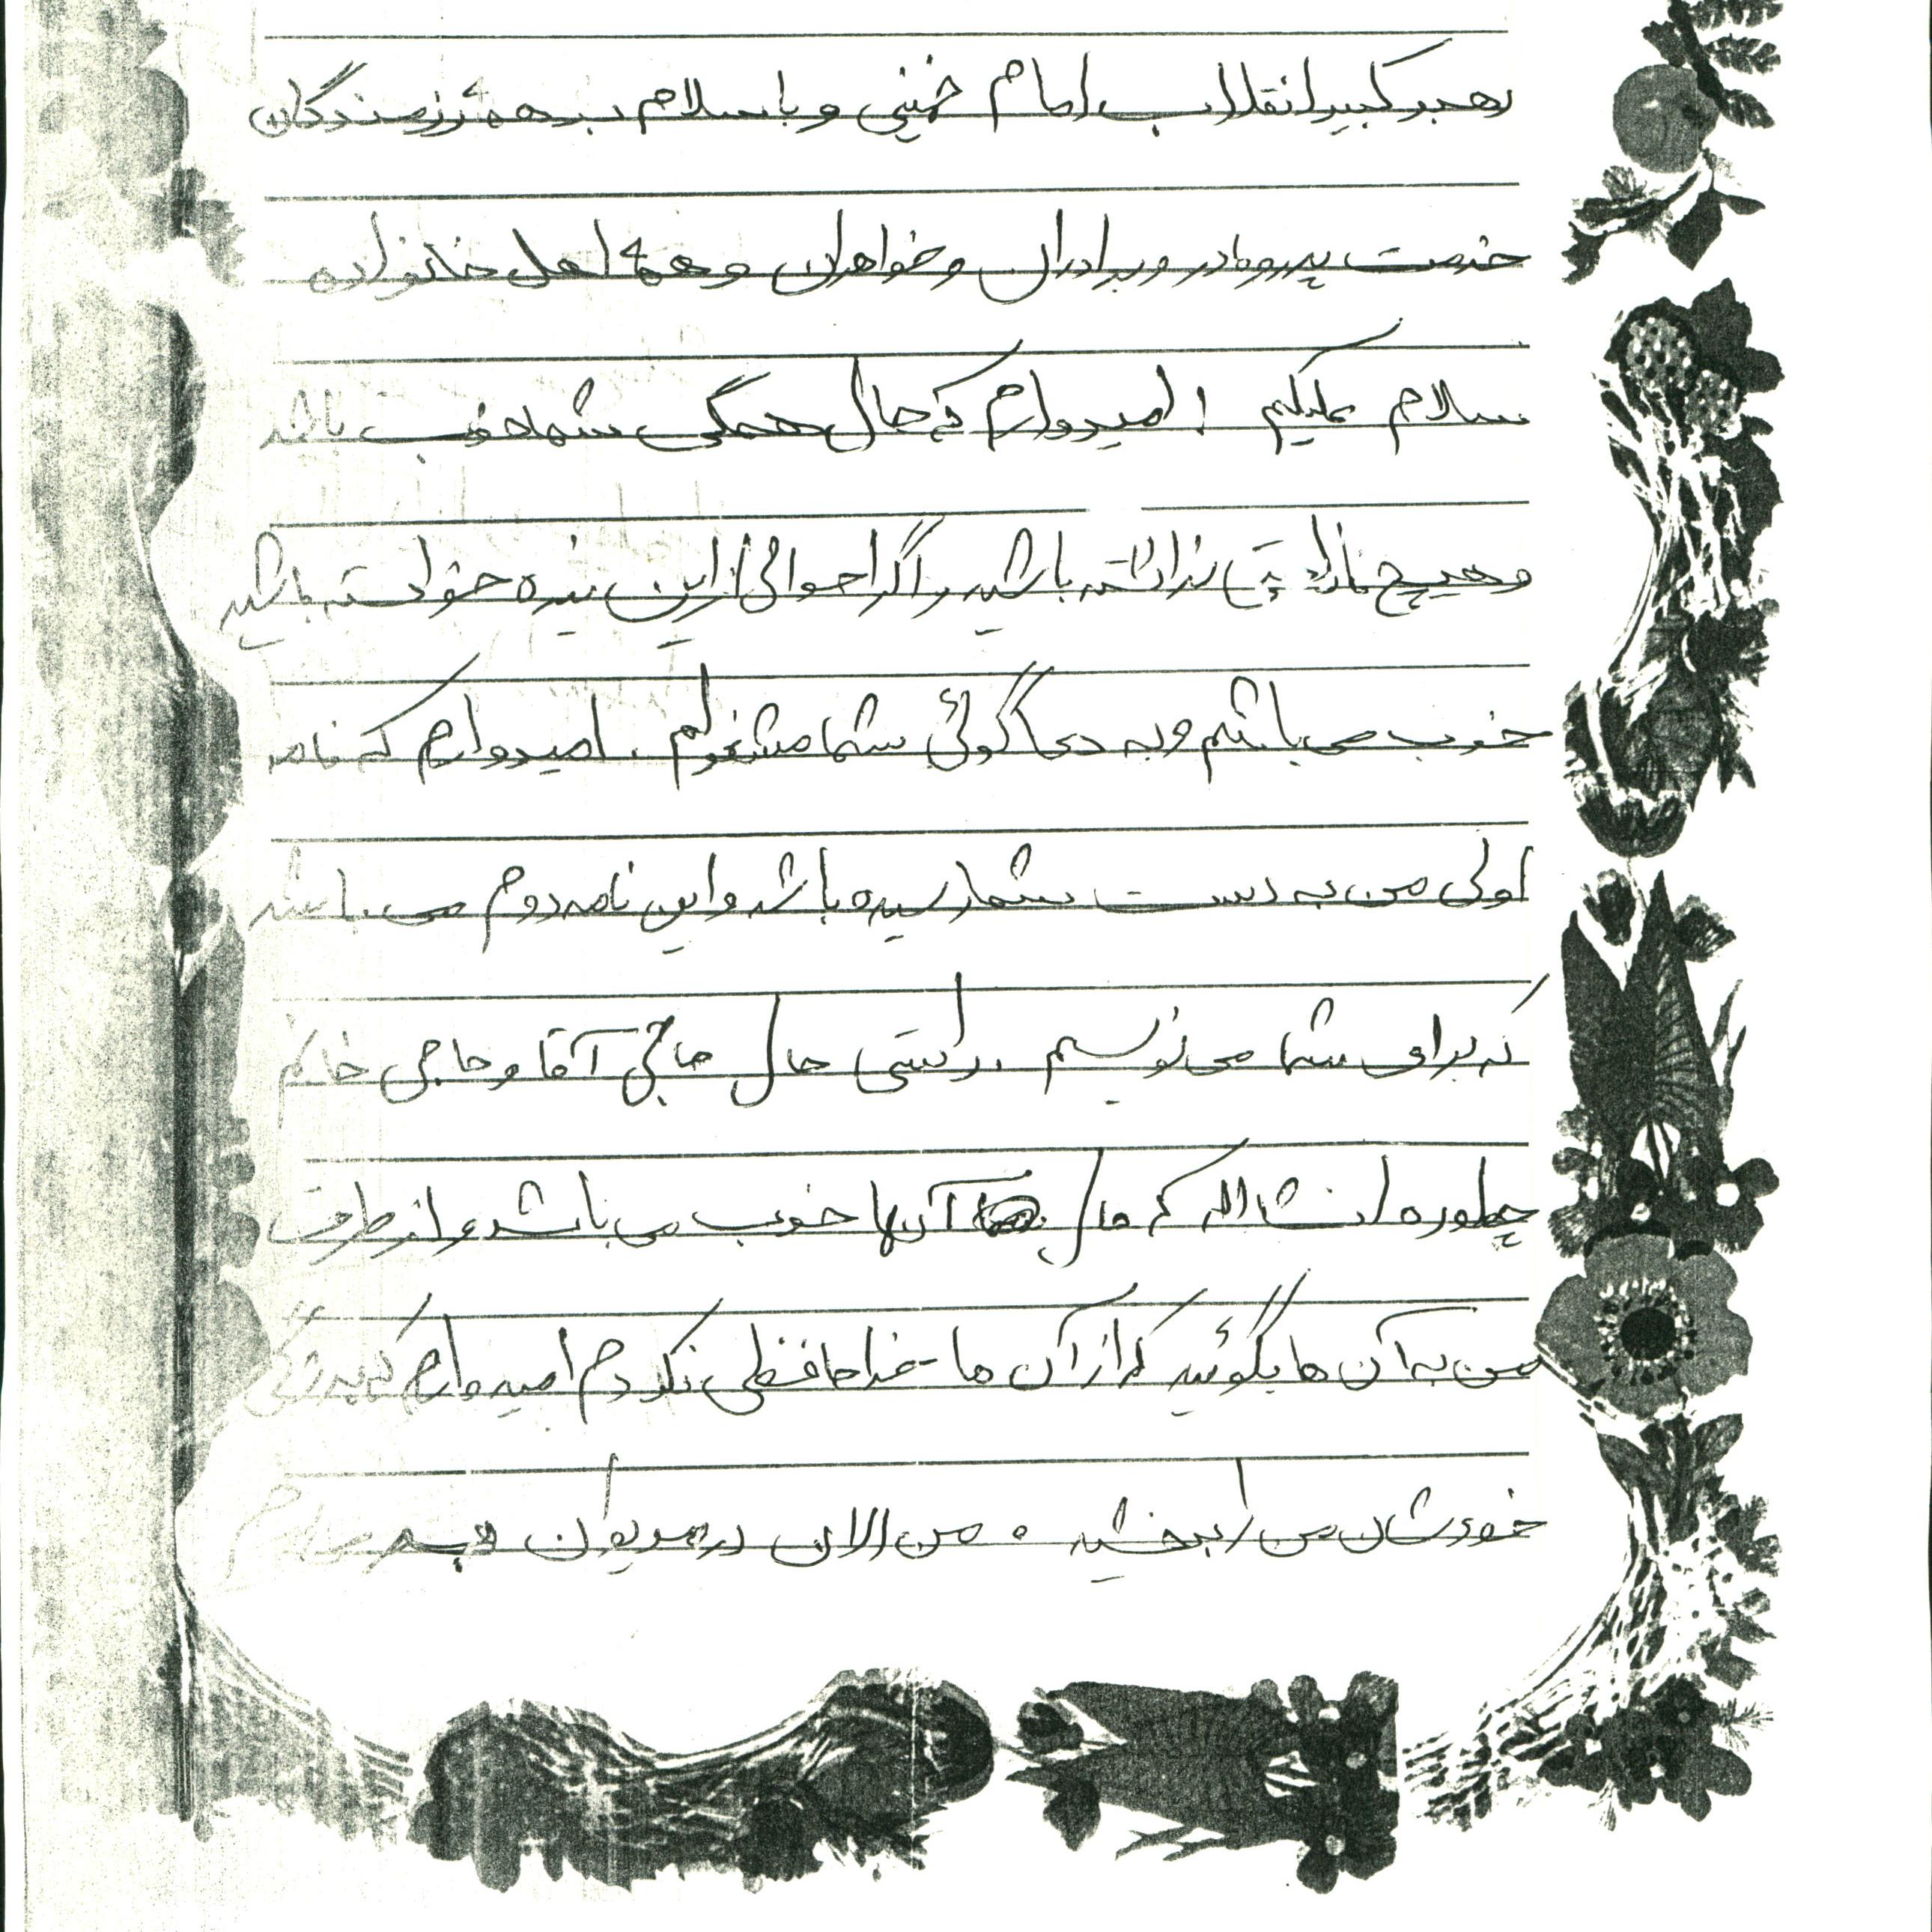 رهبر کبیر انقلاب امام خمینی و با سلام به همه رزمندگان
خدمت پدر و مادر و برادران و خواهران و همه اهل خانواده
سلام علیکم ! امیدوارم که حال همگی شما خوب باشد
و هیچ ناراحتی نداشته باشید و اگر احوالی از این بنده خواسته باشید
خوب می باشم و به دعا گوئی شما مشغولم . امیدوارم که نامه
اولی من به دست شما رسیده باشد و این نامه دوم می باشد
که برای شما می نویسم . راستی حال حاجی آقا و حاجی خانم
چطوره انشاالله که حال آنها خوب می باشد و از طرف
من به آن ها بگوئید که از آن ها خداحافظی نکردم امیدوارم که به بزرگی
خودشان من را ببخشید ه من الان در مریوان